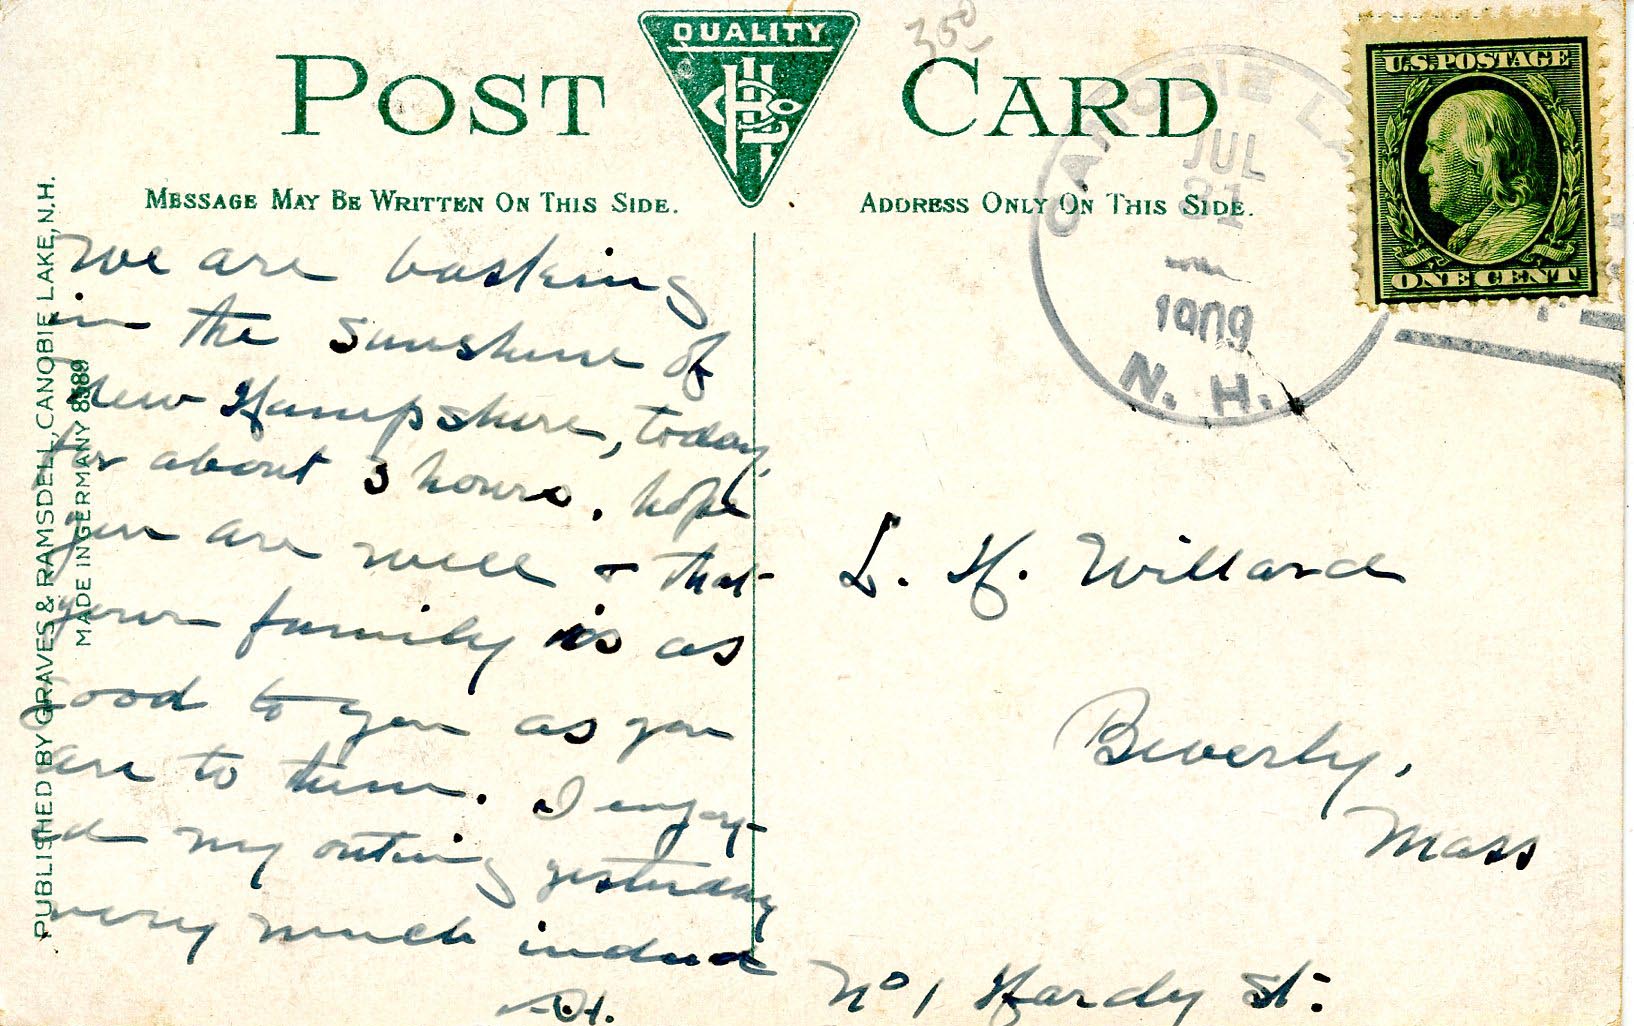 POST CARD
QUALITY
MESSAGE MAY BE WRITTEN ON THIS SIDE.
ADDRESS ONLY ON THIS SIDE.
350
CANOBIE LA
JUL
31
1909
N. H.
U.S. POSTAGE
ONE CENT
PUBLISHED BY GRAVES & RAMSDELL, CANOBIE LAKE, N.H.
MADE IN GERMANY 8589
We are basking
in the sunshine of
New Hampshire, today,
for about 3 hours. hope
you are well & that
your family is as
good to you as you
are to them. I enjoy-
ed my outing yesterday
very much indeed
H.
L. H. Willard
Beverly,
Mass
No 1 Hardy St: